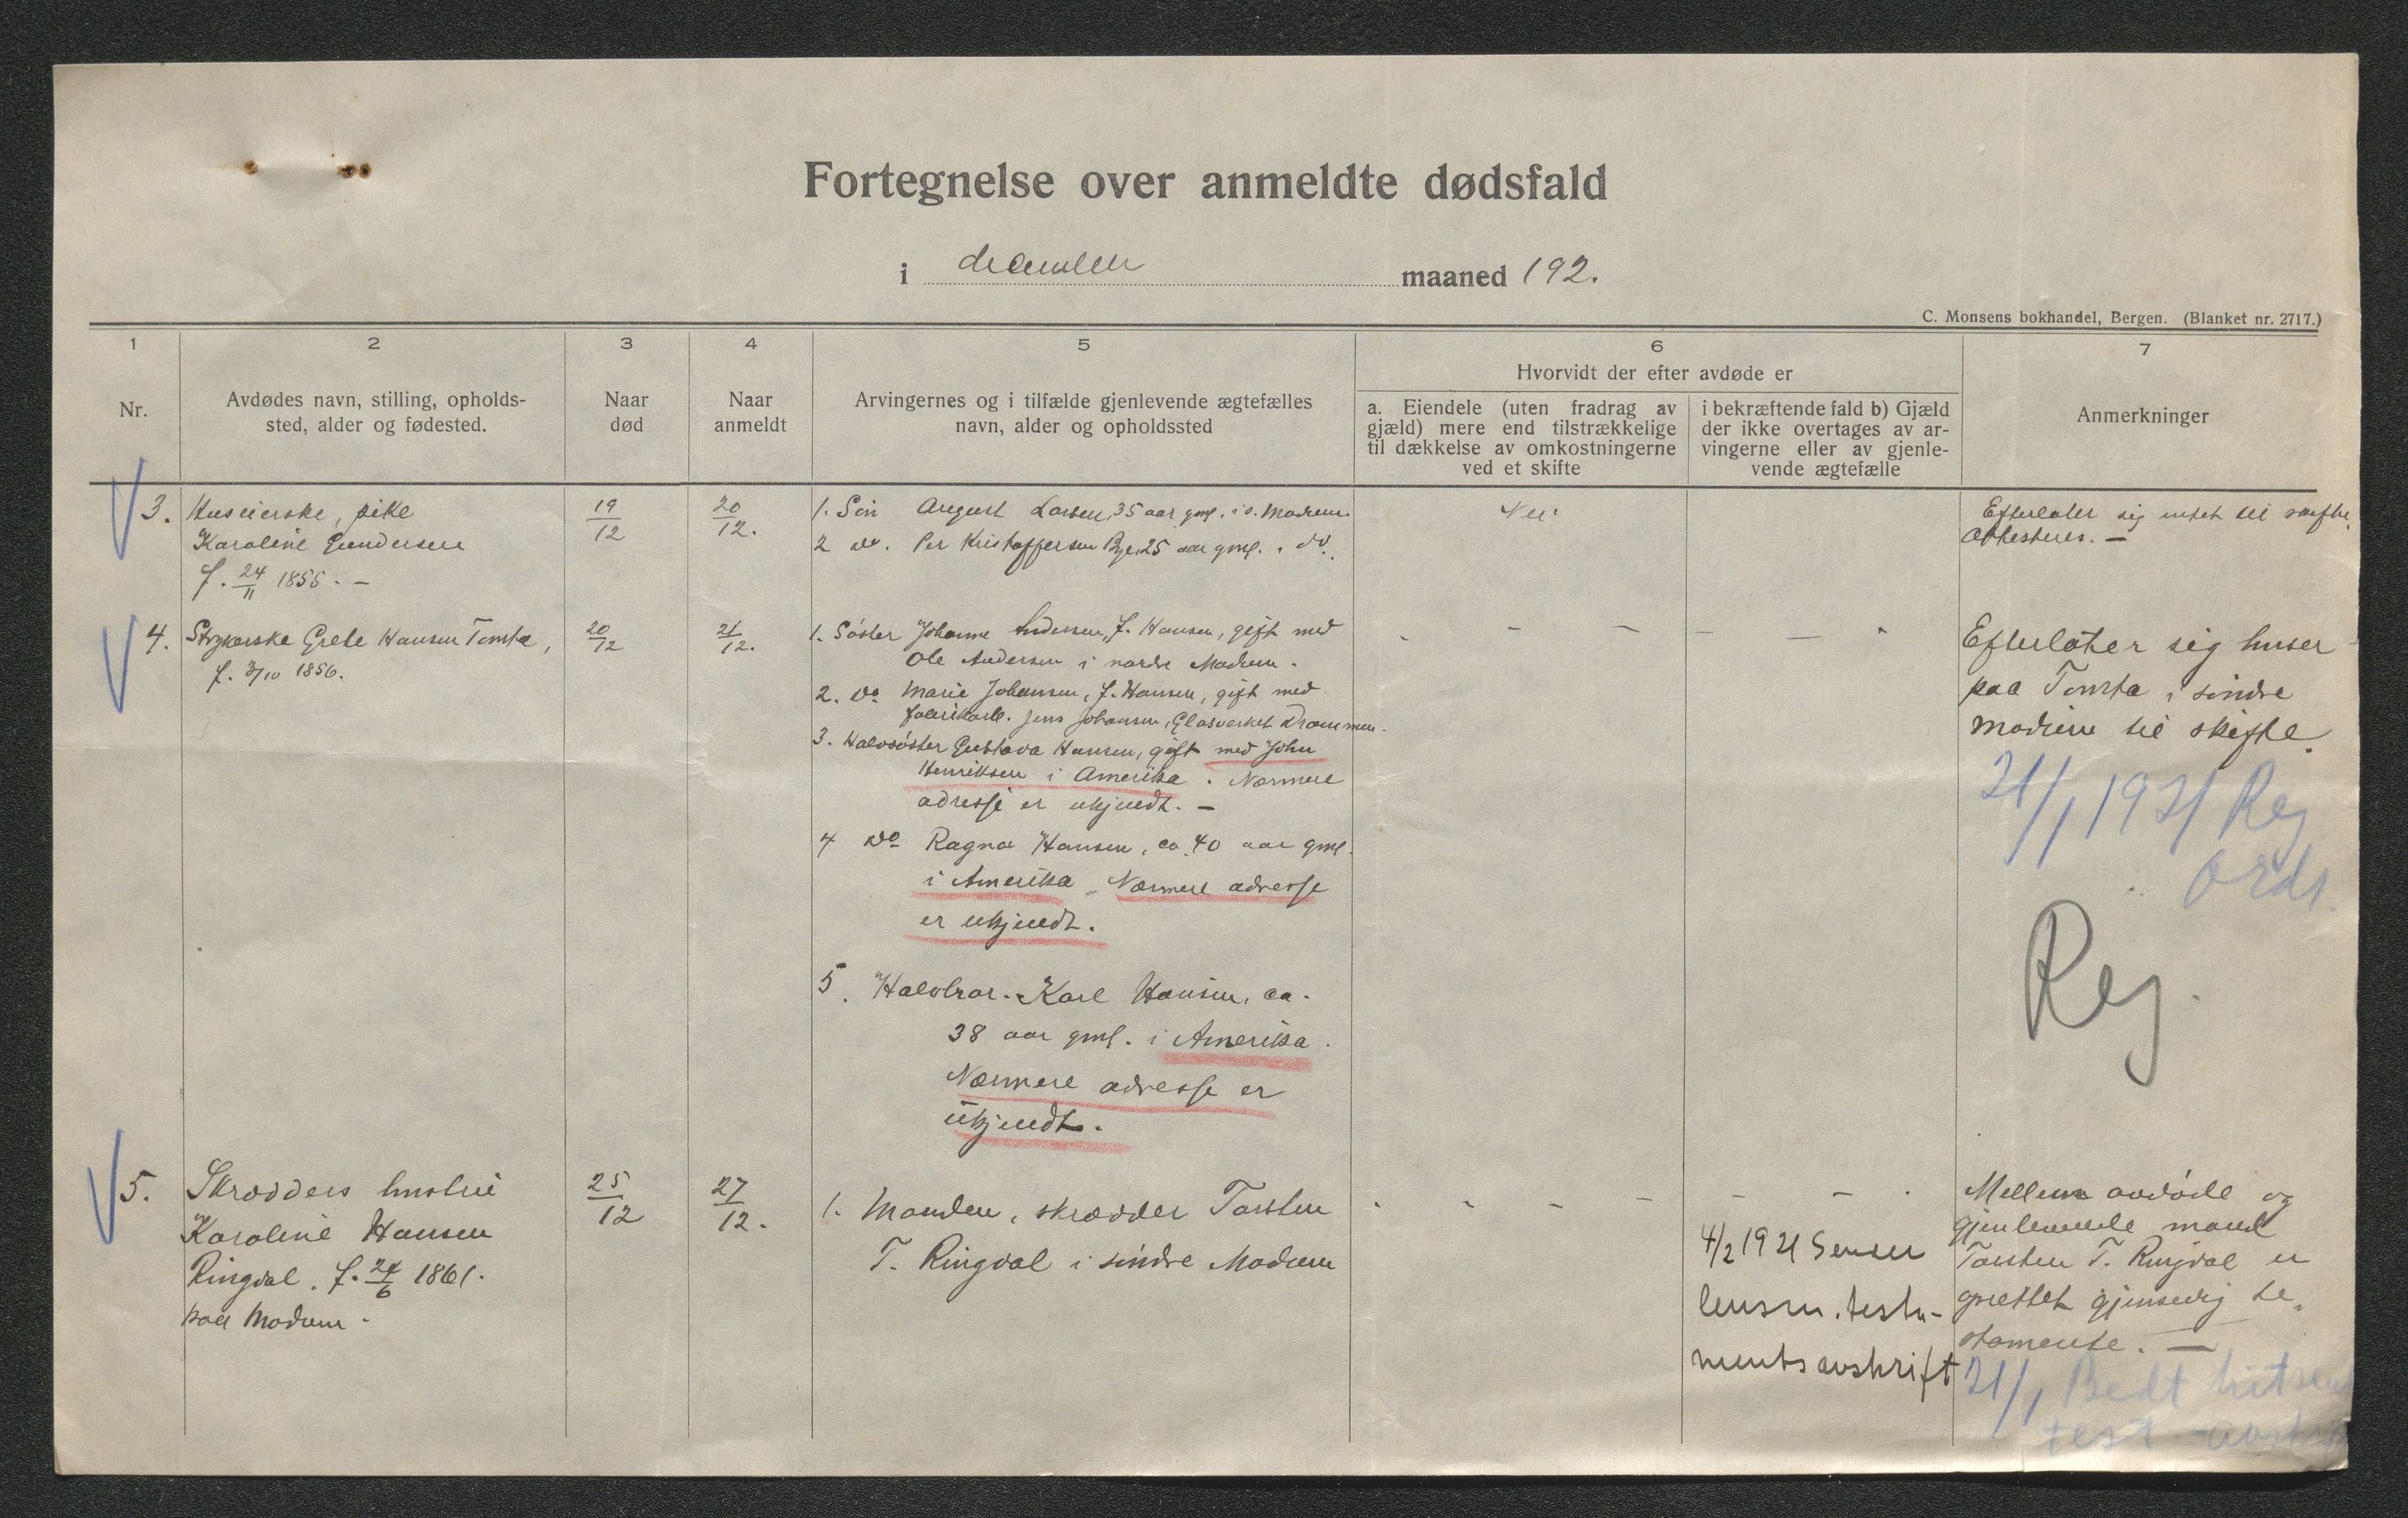 Fortegnelse over anmeldte dødsfald
i december maaned 192.
C. Monsens bokhandel, Bergen. (Blanket nr. 2717.)
1
Nr.
2
Avdødes navn, stilling, opholds-
sted, alder og fødested.
3
Naar
død
4
Naar
anmeldt
5
Arvingernes og i tilfælde gjenlevende ægtefælles
navn, alder og opholdssted
6
Hvorvidt der efter avdøde er
a. Eiendele (uten fradrag av
gjæld) mere end tilstrækkelige
til dækkelse av omkostningerne
ved et skifte
i bekræftende fald b) Gjæld
der ikke overtages av ar-
vingerne eller av gjenle-
vende ægtefælle
7
Anmerkninger
3.
Huseierske, pike
Karoline Gundersen
f. 24/11 1855. —
19/12
20/12.
1. Søn August Larsen, 35 aar gml. i s. Modum.
2 do. Per Kristoffersen Bye, 25 aar gml. i do.
Nei
Efterlater sig intet til skifte.
Attesteres. —
4.
Strykerske Grete Hansen Tomta,
f. 3/10 1856.
20/12
21/12.
1. Søster Johanne Andersen, f. Hansen, gift med
Ole Andersen i nordre Modum.
2. do Marie Johansen, f. Hansen, gift med
fabrikarb. Jens Johansen, Glasverket Drammen.
3. Halvsøster Gustava Hansen, gift med John
Henriksen i Amerika. Nærmere
adresse er ukjendt. —
4 do Ragna Hansen, ca. 40 aar gml.
i Amerika. Nærmere adresse
er ukjendt.
5. Halvbror. Karl Hansen, ca.
38 aar gml. i Amerika.
Nærmere adresse er
ukjendt.
- — — — — -
Efterlater sig huser
paa Tomta i søndre
Modum til skifte.
21/1 1921 Reg
ords.
Reg.
5.
Skrædders hustru
Karoline Hansen
Ringdal. f. 24/6 1861.
paa Modum.
25/12
27/12.
1. Manden, skrædder Torsten
T. Ringdal i søndre Modum
- - — — — — -
4/2 1921 Sender
lensm. testa-
mentsavskrift
Mellem avdøde og
gjenlevende mand
Torsten T. Ringdal er
oprettet gjensidig te-
stamente. —
21/1 Bedt
test avskr